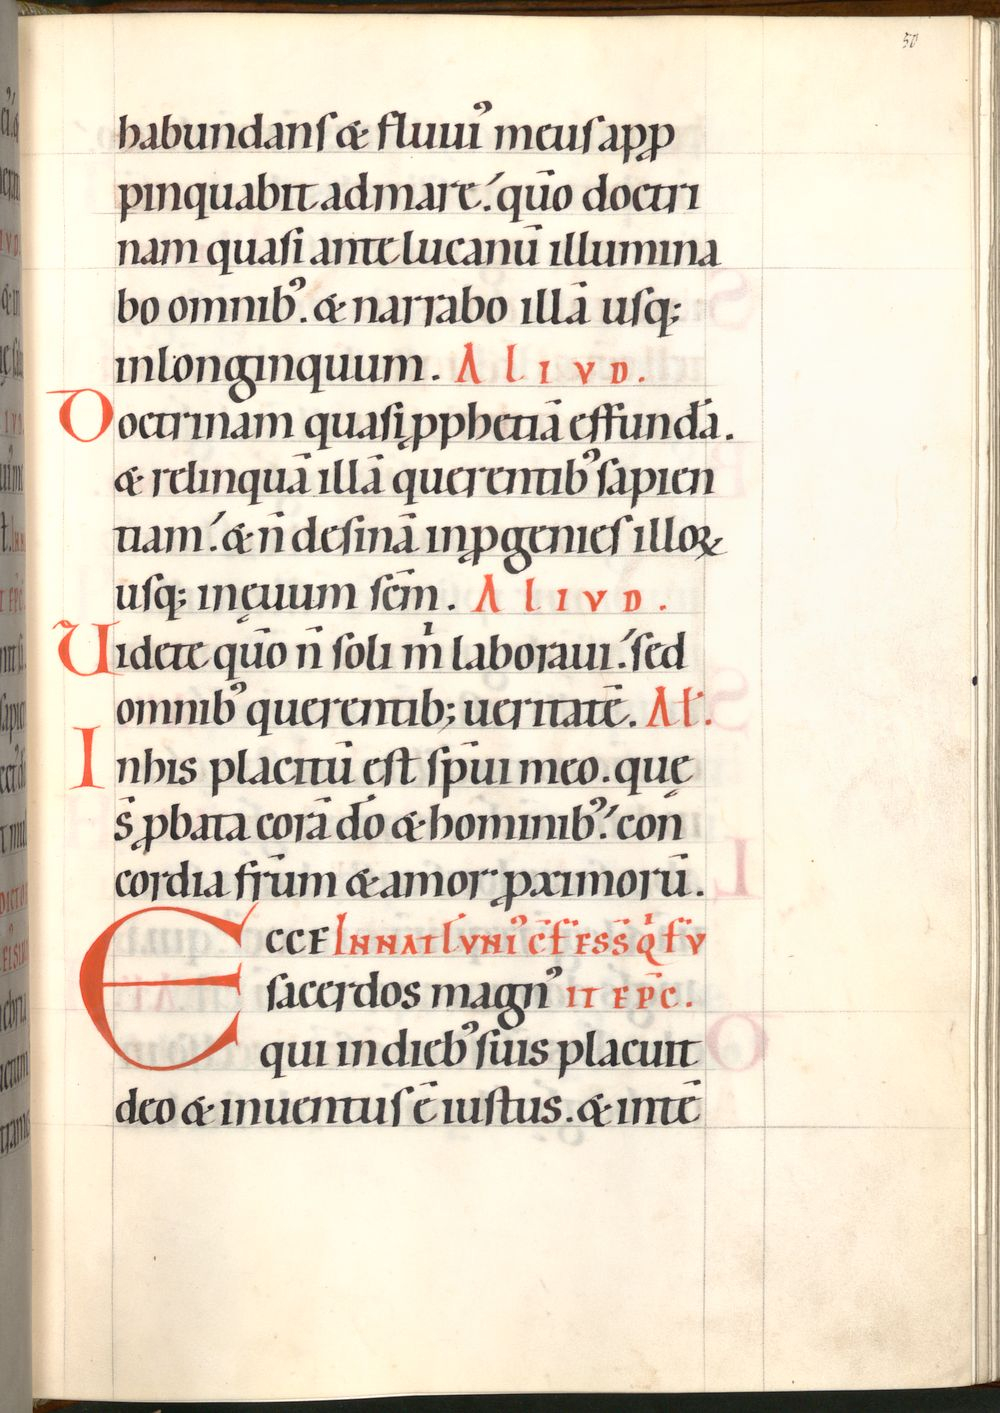 50
habundanſ & fluuiꝰ meuſ app̱
pinquabit ad mare. quō doctri
nam quaſi antelucanū illumina
bo omnibꝰ. & narrabo illā uſq;
in longinquum. ALIVD.
Doctrinam quaſi ꝓphetiā effundā.
& relinquā illā querentibꝰ ſapien
tiam. & n̄ deſinā in ꝓgenieſ illoꝝ
uſq; in ęuum ſcm̄. ALIVD.
Uidete quō n̄ ſoli mͥ laboraui. ſed
omnibꝰ querentib; ueritatē. AL.
In his placitū eſt ſpūi meo. quę
s̄ ꝓbata corā dō & hominibꝰ. con
cordia frūm & amor ꝓximorū.
ECCE IN NATL VNIꝰ CF̄ESS Qͥ FV
ſacerdos magnꝰ IT EPC̄.
qui in diebꝰ ſuis placuit
deo & inuentuſ ē iuſtus. & in tē